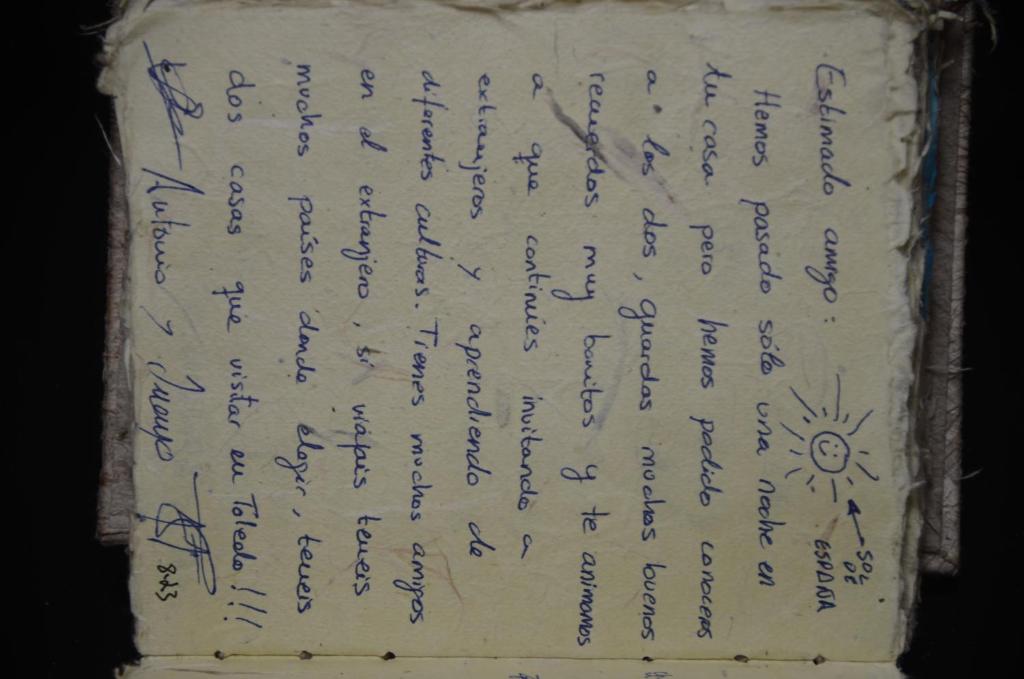 Estimado amigo:
SOL
DE
ESPAÑA
Hemos pasado sólo una noche en
tu casa pero hemos podido conoceros
a los dos, guardas muchos buenos
recuerdos muy bonitos y te animamos
a que continúes invitando a
extranjeros y aprendiendo de
diferentes culturas. Tienes muchos amigos
en el extranjero, si viajáis tenéis
muchos países donde elegir, tenéis
dos casas que visitar en Toledo!!!
Antonio y Juanjo